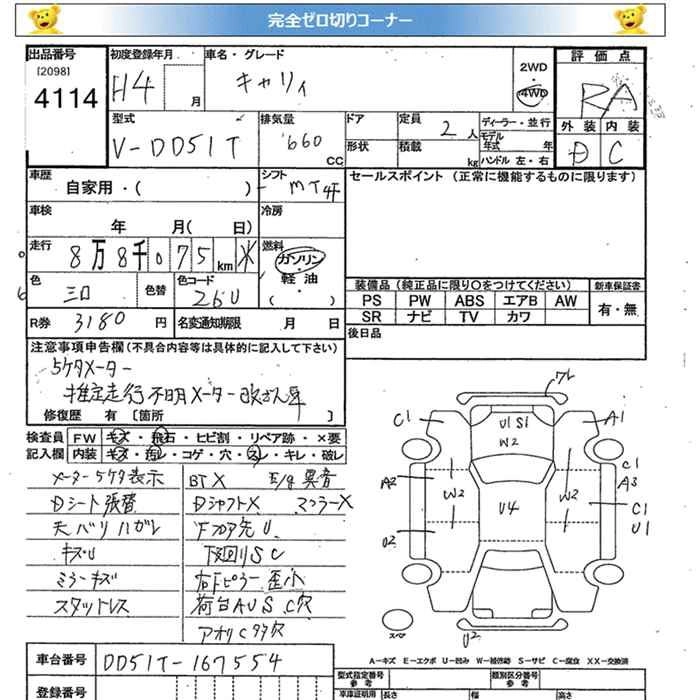 完全ゼロ切りコーナー
出品番号 初度登録年月 車名・グレード 評価点
[2098] 4114
H4 月 キャリィ 2WD・4WD RA
型式 排気量 ドア 定員 ディーラー・並行 外装 内装
V-DD51T 660 CC 2人 モデル年式 年 D C
形状 積載 kg ハンドル 左・右
車歴 シフト セールスポイント (正常に機能するものに限ります)
自家用・( ) MT4F
車検 冷房
年 月( 日)
走行 燃料
8万8千075km ※ ガソリン・軽油・( )
色 色替 色コード 装備品 (純正品に限り〇をつけてください) 新車保証書
シロ 26U PS PW ABS エアB AW 有・無
SR ナビ TV カワ
R券 3180円 名変通知期限 月 日 後日品
注意事項申告欄(不具合内容等は具体的に記入して下さい)
5ケタメーター
推定走行不明メーター改ざん車
修復歴 有 [箇所 ]
検査員記入欄 FW キズ・飛石・ヒビ割・リペア跡・×要
内装 キズ・汚レ・コゲ・穴・スレ・キレ・破レ
メーター5ケタ表示 BTX E/g異音
Dシート張替 DシャフトX マフラーX
天バリハガレ 下フロア先U
キズU 下廻りSC
ミラーキズ 右Fピラー歪小
スタットレス 荷台AUS C穴
アオリC多穴
フレ
C1 U1 S1 W2 A1
A2 W2 U4 W2 C1 A3
U2 C1 U1
スペア U2
A-キズ E-エクボ U-凹み W-補修跡 S-サビ C-腐食 XX-交換済
車台番号 DD51T-167554
型式指定番号 参考 類別区分番号 参考
登録番号 車庫証明用 長さ 幅 高さ